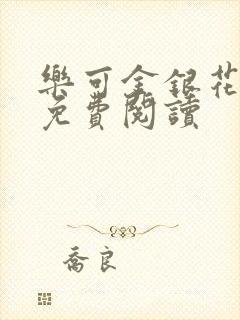 樂可金銀花
免費閱讀
喬良